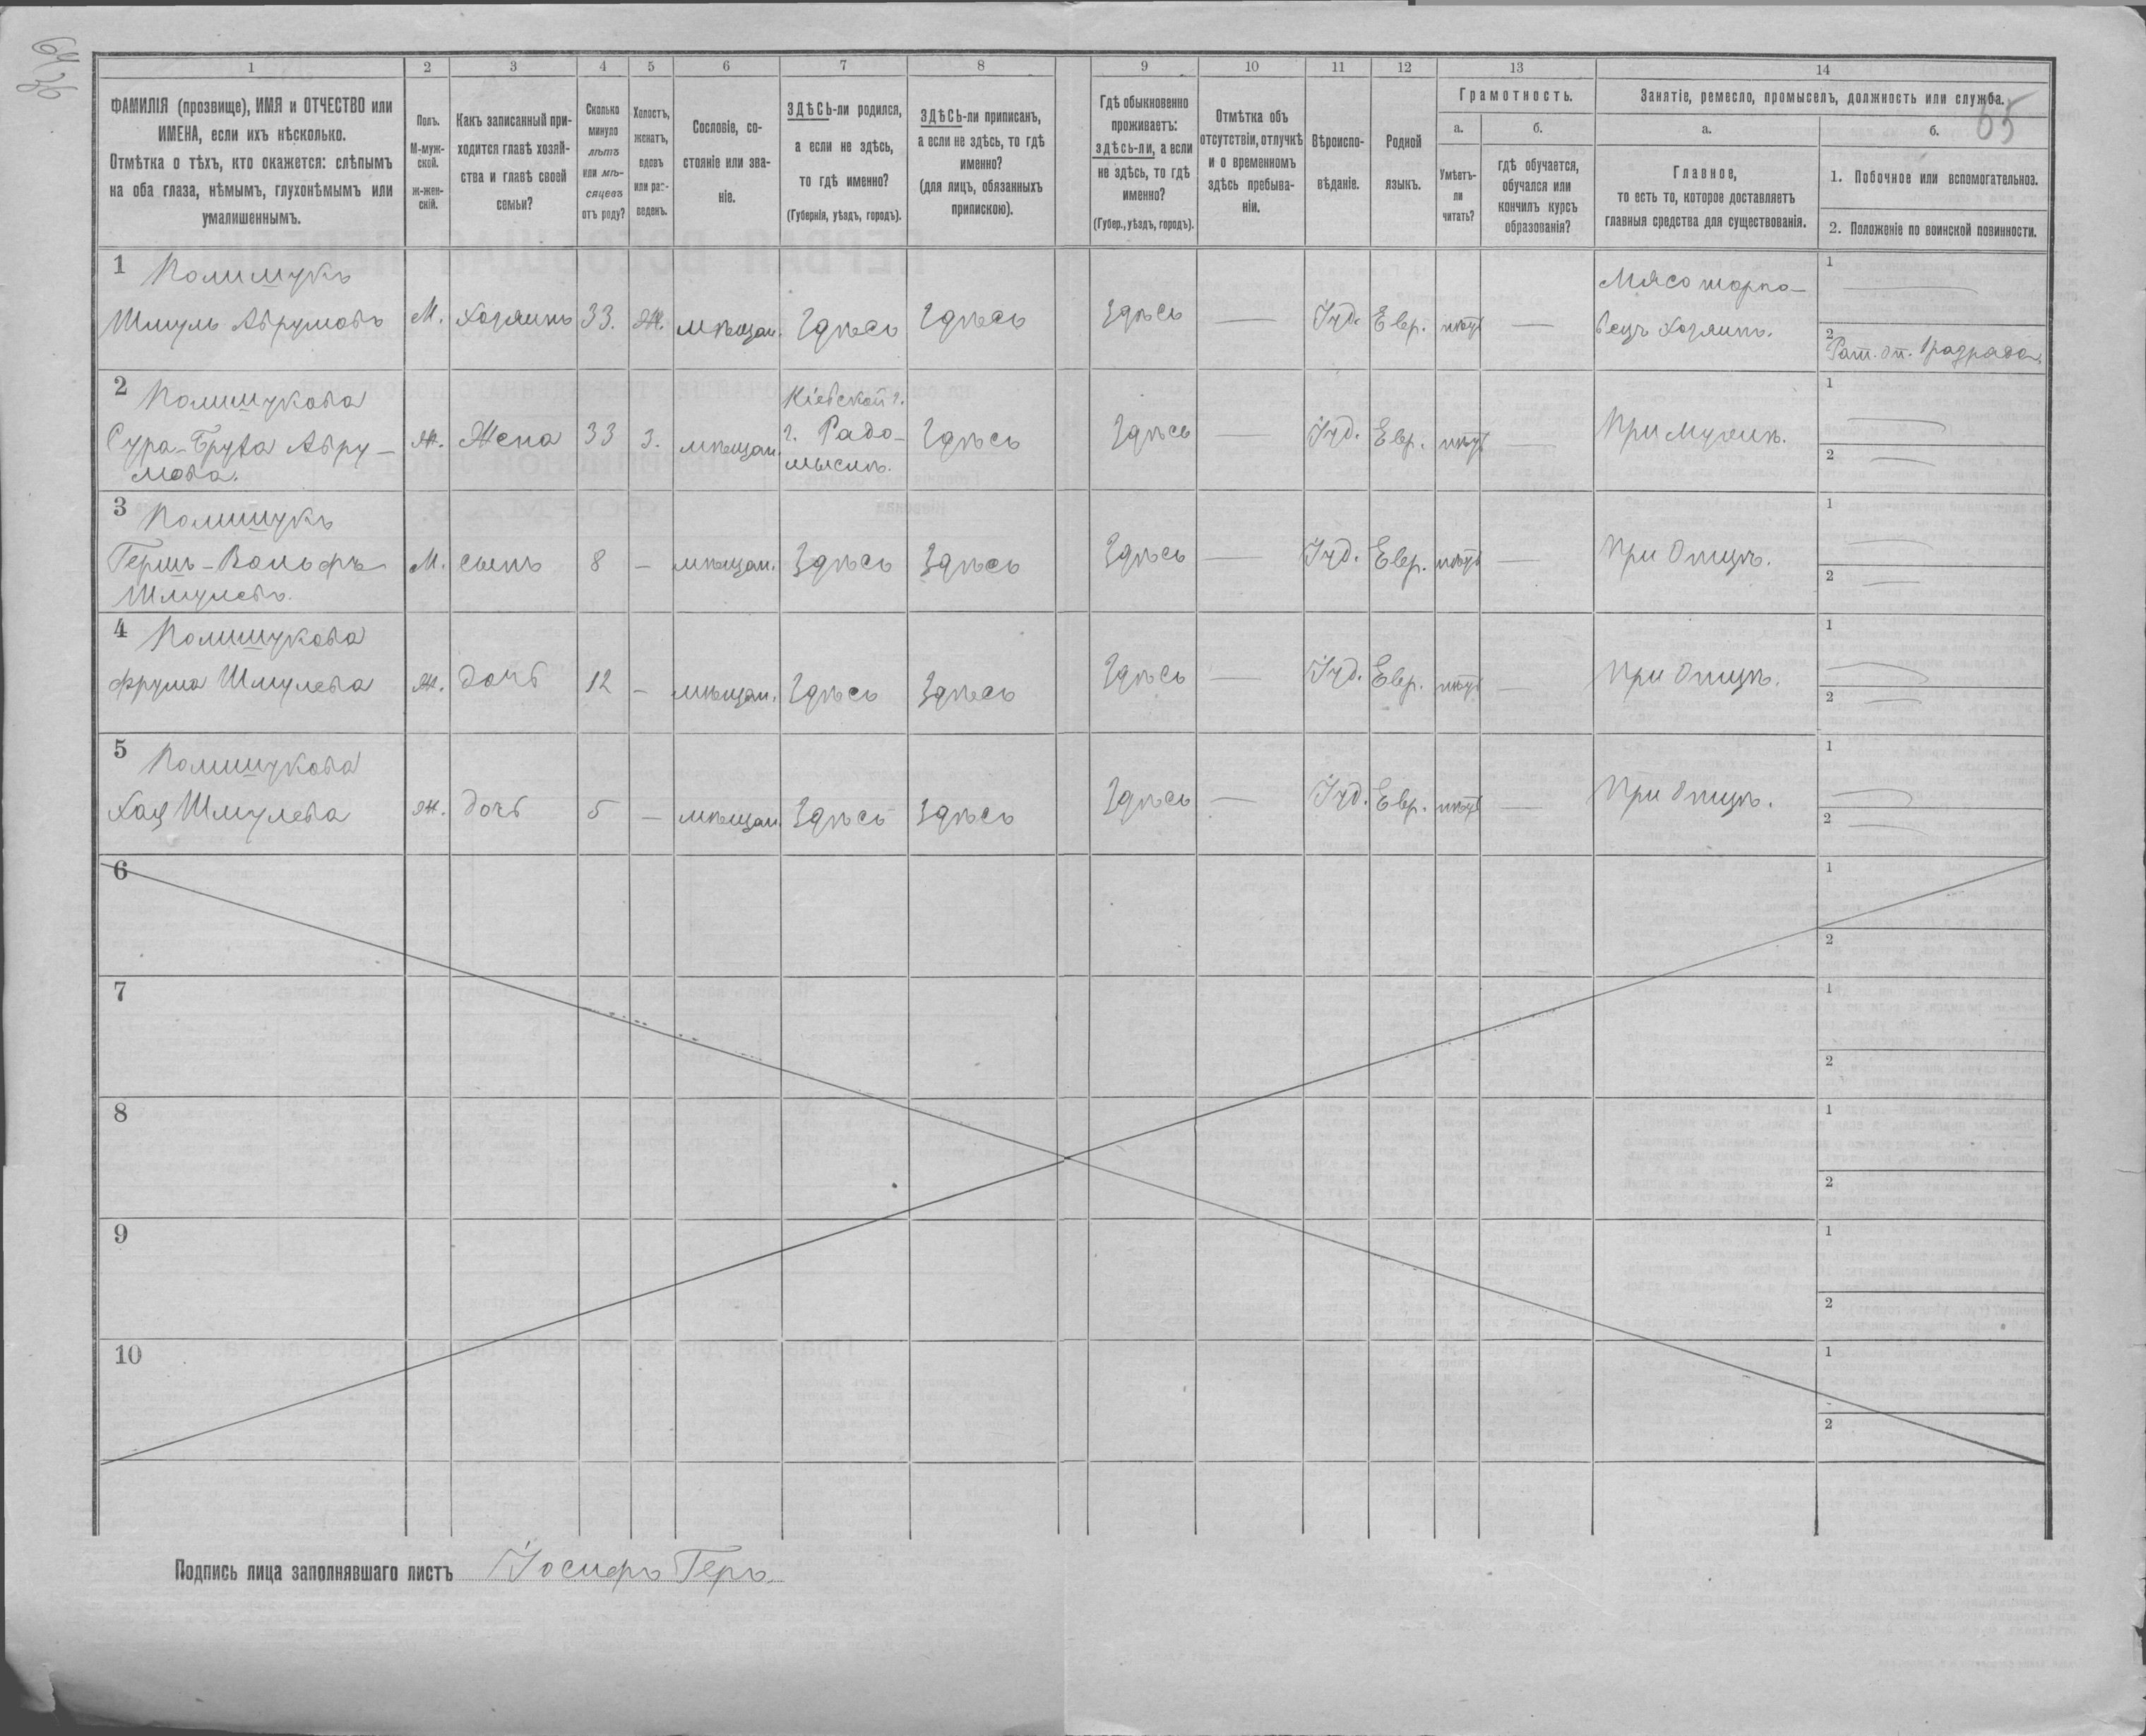 64
36
65
1 2 3 4 5 6 7 8 9 10 11 12 13 14
ФАМИЛІЯ (прозвище), ИМЯ и ОТЧЕСТВО или
ИМЕНА, если ихъ нѣсколько.
Отмѣтка о тѣхъ, кто окажется: слѣпымъ
на оба глаза, нѣмымъ, глухонѣмымъ или
умалишеннымъ.
Полъ.
М-муж-
ской.
ж-жен-
скій.
Какъ записанный при-
ходится главѣ хозяй-
ства и главѣ своей
семьи?
Сколько
минуло
лѣтъ
или мѣ-
сяцевъ
отъ роду?
Холостъ,
женатъ,
вдовъ
или раз-
веденъ.
Сословіе, со-
стояніе или зва-
ніе.
ЗДѢСЬ-ли родился,
а если не здѣсь,
то гдѣ именно?
(Губернія, уѣздъ, городъ).
ЗДѢСЬ-ли приписанъ,
а если не здѣсь, то гдѣ
именно?
(для лицъ, обязанныхъ
припискою).
Гдѣ обыкновенно
проживаетъ:
здѣсь-ли, а если
не здѣсь, то гдѣ
именно?
(Губер., уѣздъ, городъ).
Отмѣтка объ
отсутствіи, отлучкѣ
и о временномъ
здѣсь пребыва-
ніи.
Вѣроиспо-
вѣданіе.
Родной
языкъ.
Грамотность.
а. б.
Умѣетъ-
ли
читать?
гдѣ обучается,
обучался или
кончилъ курсъ
образованія?
Занятіе, ремесло, промыселъ, должность или служба.
а. б.
Главное,
то есть то, которое доставляетъ
главныя средства для существованія.
1. Побочное или вспомогательное.
2. Положеніе по воинской повинности.
1 Полищукъ
Шмуль Аврумовъ М. Хозяинъ 33. Ж. мѣщан. Здѣсь Здѣсь Здѣсь — Іуд. Евр. нѣтъ —
Мясоторго-
вецъ хозяинъ.
1 —
2 Рат. оп. 1 разряда.
2 Полищукова
Сура-Бруха Авру-
мова.
Ж. Жена 33 З. мѣщан.
Кіевской г.
г. Радо-
мыслѣ.
Здѣсь Здѣсь — Іуд. Евр. нѣтъ — При мужѣ.
1 —
2 —
3 Полищукъ
Гершъ-Вольфъ
Шмулевъ.
М. сынъ 8 — мѣщан. Здѣсь Здѣсь Здѣсь — Іуд. Евр. нѣтъ — При Отцѣ.
1 —
2 —
4 Полищукова
Фрума Шмулева Ж. дочь 12 — мѣщан. Здѣсь Здѣсь Здѣсь — Іуд. Евр. нѣтъ — При Отцѣ.
1 —
2 —
5 Полищукова
Хая Шмулева Ж. дочь 5 — мѣщан. Здѣсь Здѣсь Здѣсь — Іуд. Евр. нѣтъ — При Отцѣ.
1 —
2 —
6
1
2
7
1
2
8
1
2
9
1
2
10
1
2
Подпись лица заполнявшаго листъ Іосифъ Геръ.